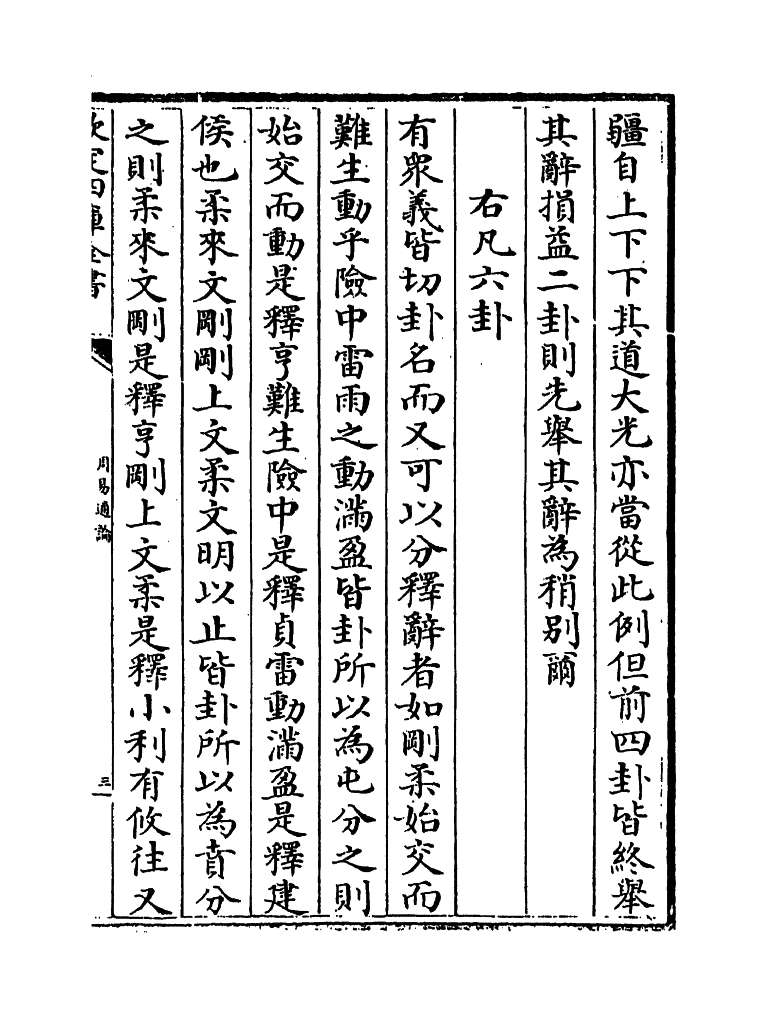 疆自上下下其道大光亦當從此例但前四卦皆終舉
其辭損益二卦則先舉其辭為稍别爾
右凡六卦
有衆義皆切卦名而又可以分釋辭者如剛柔始交而
難生動乎險中雷雨之動滿盈皆卦所以為屯分之則
始交而動是釋亨難生險中是釋貞雷動滿盈是釋建
侯也柔來文剛剛上文柔文明以止皆卦所以為賁分
之則柔來文剛是釋亨剛上文柔是釋小利有攸往又
欽定四庫全書
周易通論
三